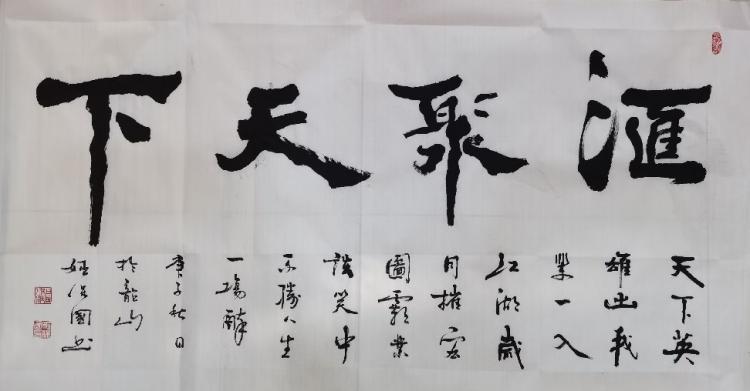 滙聚天下
天下英
雄出我
輩一入
江湖歲
月摧宏
圖霸業
談笑中
不勝人生
一場醉
庚子秋日
於龍山
國書